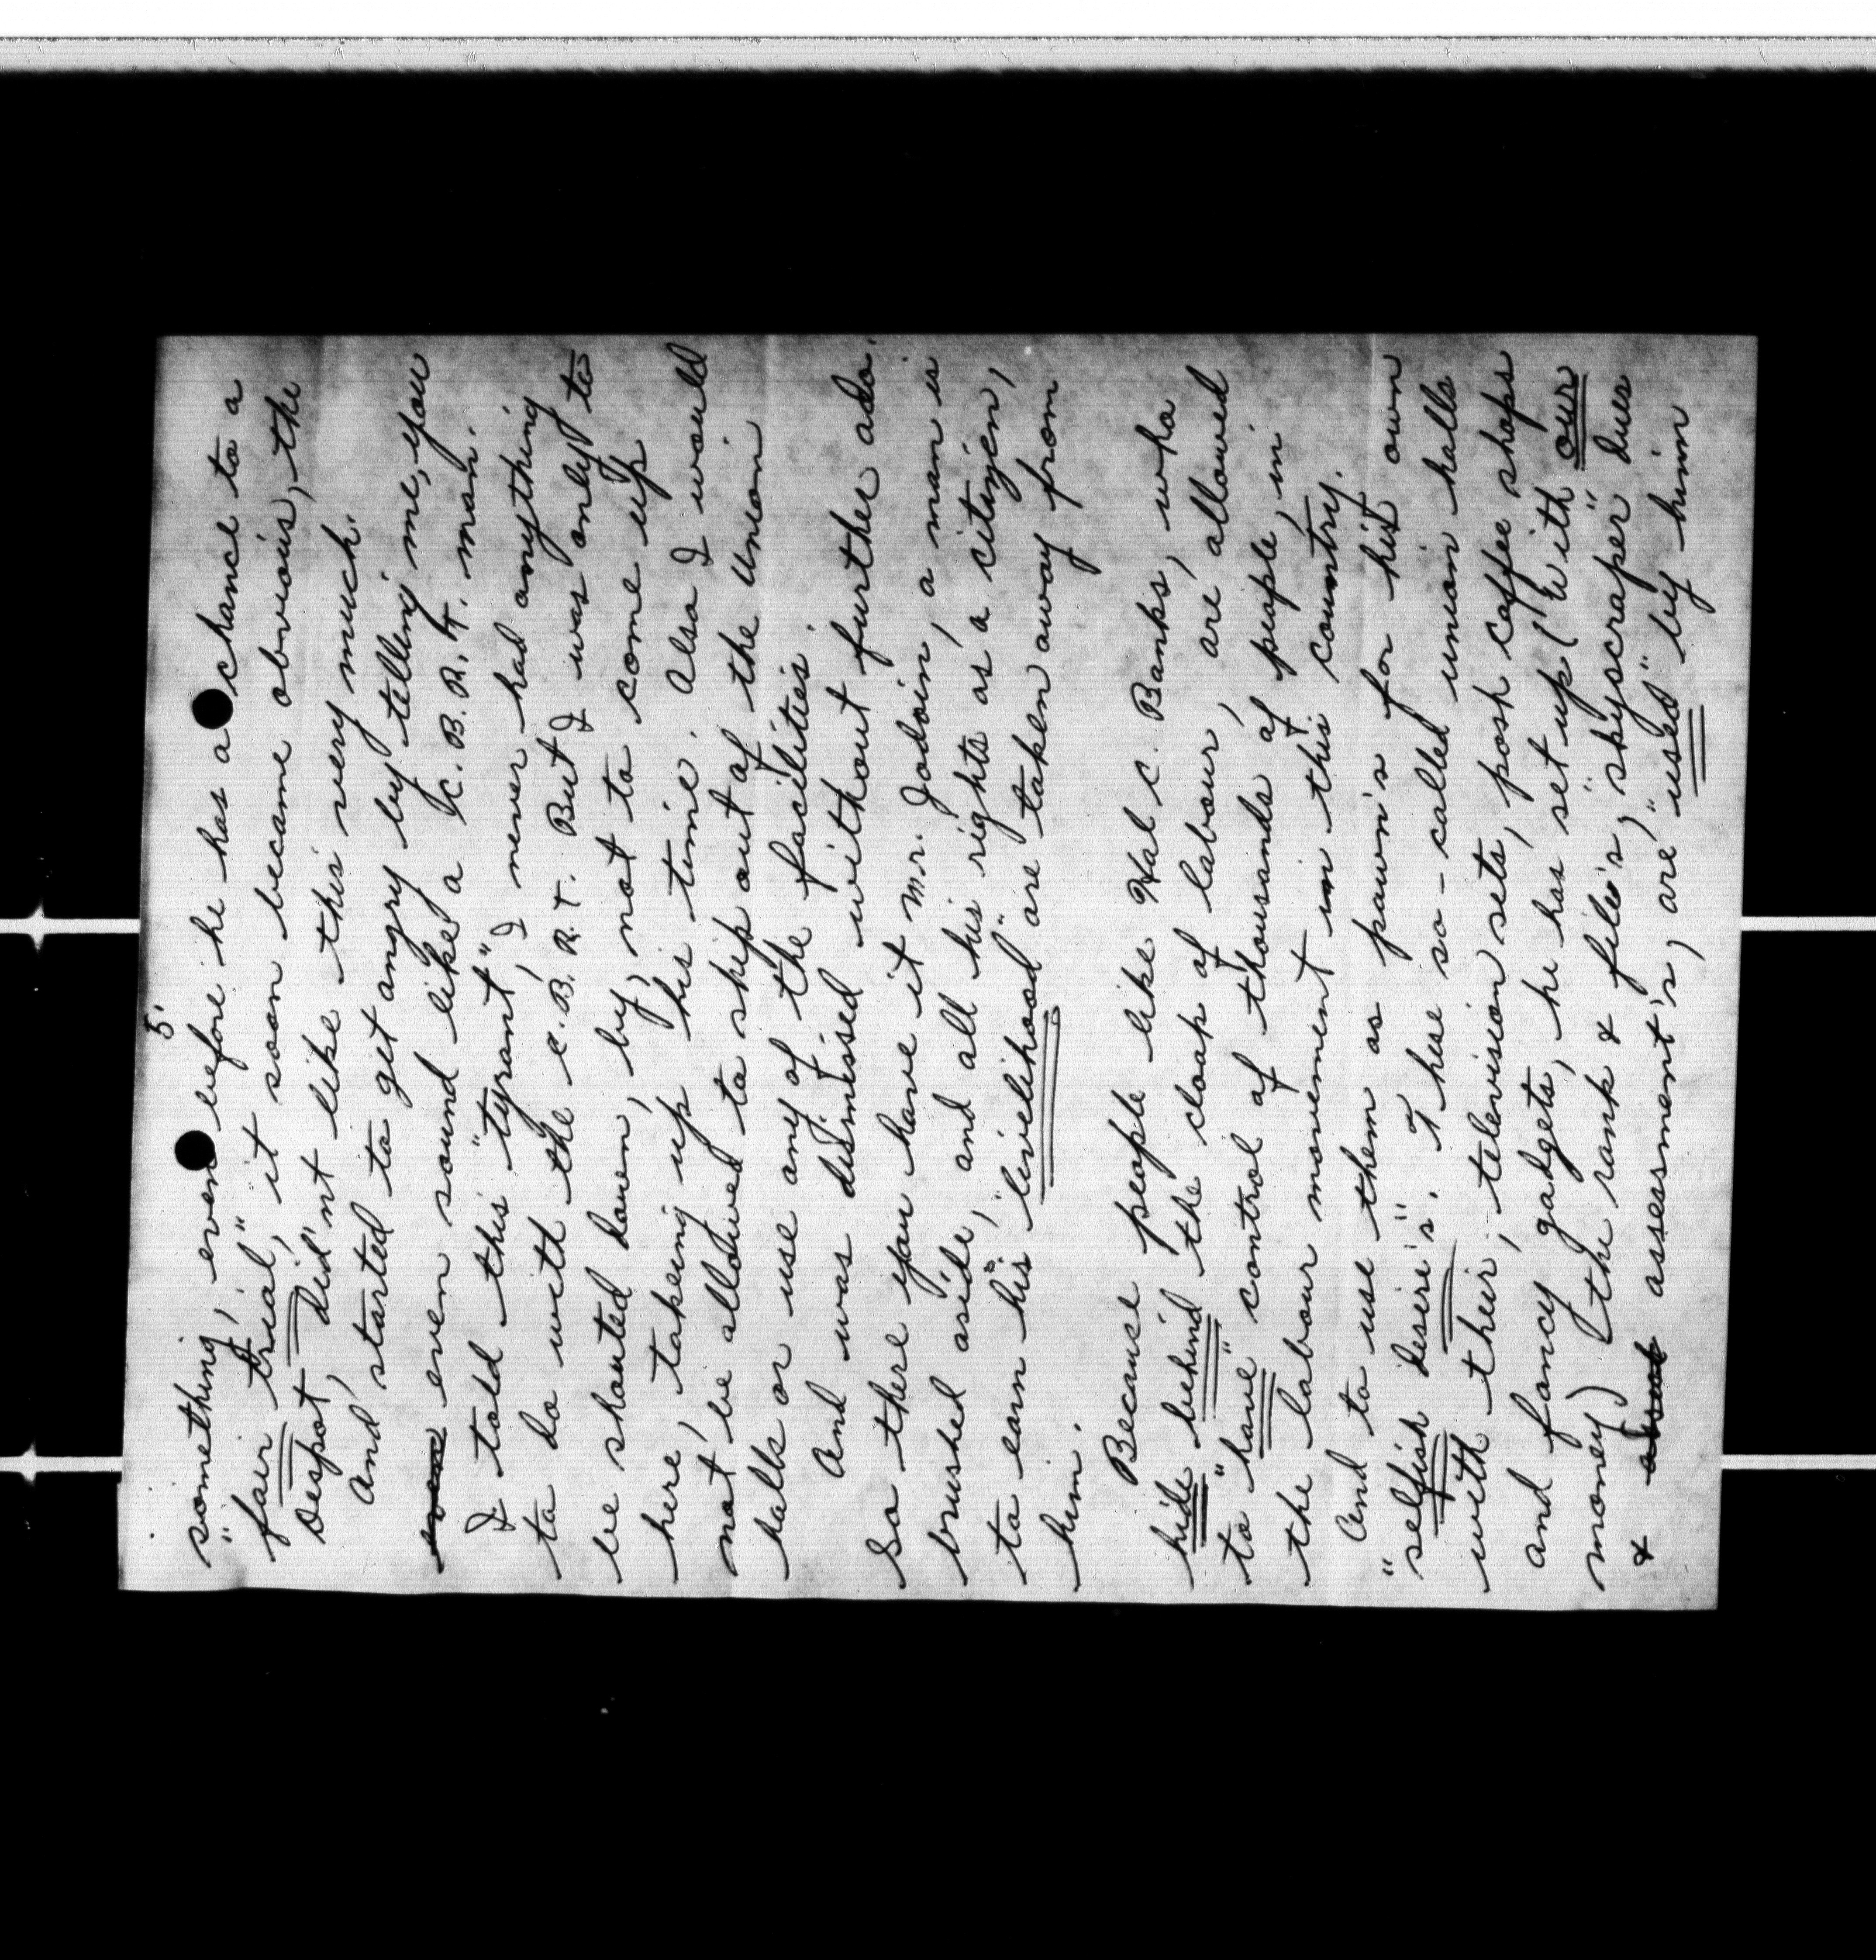 5.
something, even before he has a chance to a
"fair trial," it soon became obvious, the
Despot, did'nt like this very much.
And, started to get angry by telling me, you
even even sound like a C. B. R. T. man.
I told this "tyrant", I never had anything
to do with the C. B. R. T. But I was only to
be shouted down, by, not to come up
here, takeing up his time. Also I would
not be allowed to ship out of the Union
halls or use any of the facilities.
And was dismissed without further ado.
So there you have it Mr. Jodoin, a man is
brushed aside, and all his rights as a citizen,
to earn his, "livelihood" are taken away from
him.
Because people like Hal C. Banks, who
hide behind the cloak of labour, are, allowed
to "have" control of thousands of people, in
the labour movement in this country.
And to use them as pawn's for his own
"selfish desire's". These so-called union halls
with their, television sets, posh coffee shops
and fancy gadgets, he has set up (with our
money) (the rank & file's, "skyscraper" dues
& assessment's, are, "used" by him